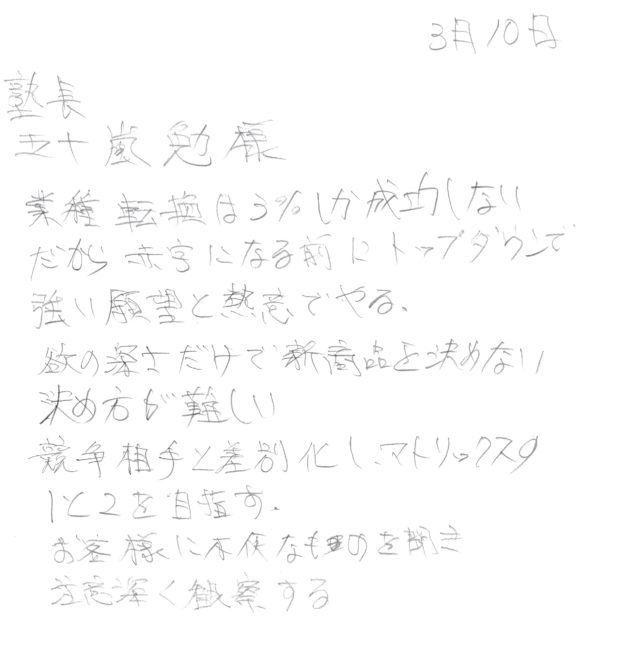 3月10日
塾長
五十嵐勉様
業種転換は3%しか成功しない
だから赤字になる前にトップダウンで
強い願望と熱意でやる、
欲の深さだけで新商品を決めない
決め方が難しい
競争相手と差別化し、マトリックスの
1と2を目指す、
お客様に不便なものを聞き
注意深く観察する